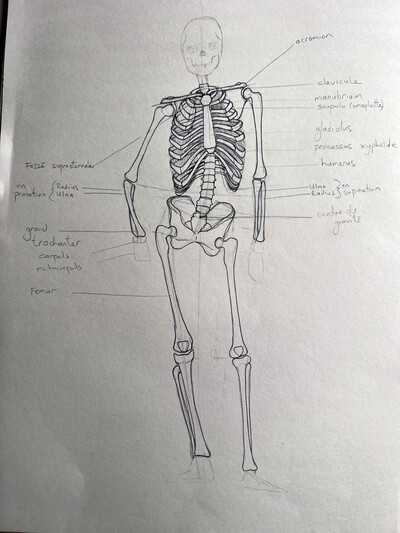 acromion
clavicule
manubrium
scapula (omoplatte)
gladiolus
processus xyphoïde
humerus
Fossé suprasternale
en pronation { Radius
Ulna
Ulna } en supination
Radius
centre de gravité
grand
trochanter
carpals
metacarpals
Femur